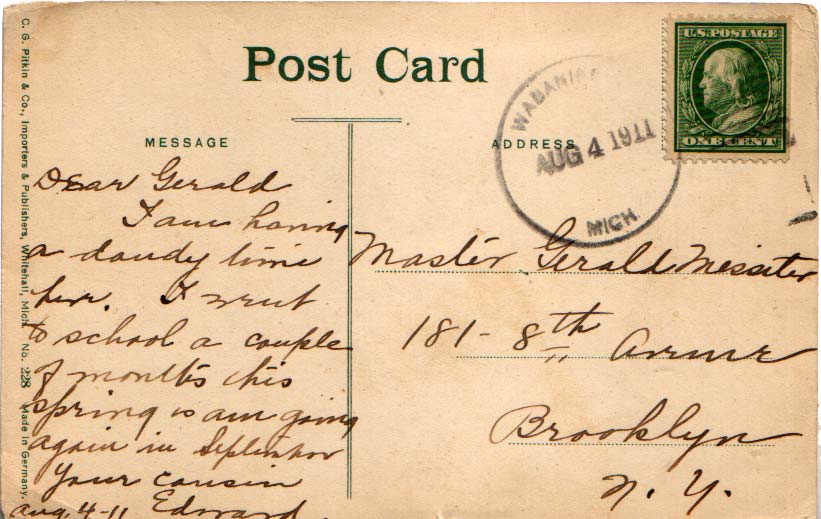 C. G. Pitkin & Co., Importers & Publishers, Whitehall, Mich. No. 228 Made in Germany.
Post Card
MESSAGE
ADDRESS
MICH.
AUG 4 1911
U.S. POSTAGE
ONE CENT
Dear Gerald
I am having
a dandy time
here. I went
to school a couple
of months this
spring & am going
again in September
Your cousin
Aug. 4-11 Edward.
Master Gerald Messiter
181- 8th Avenue
Brooklyn
N. Y.